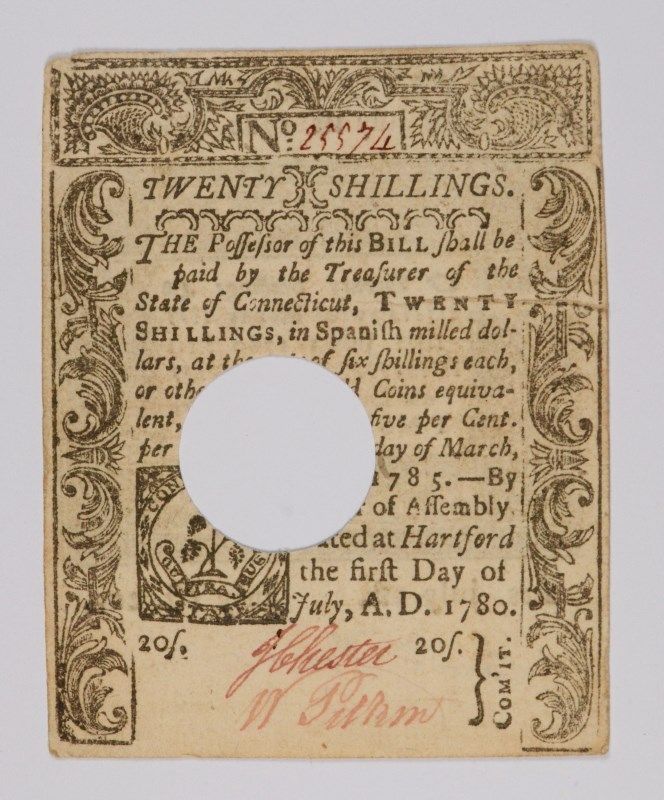 No. 25574
TWENTY SHILLINGS.
THE Poſſeſſor of this BILL ſhall be
paid by the Treaſurer of the
State of Connecticut, TWENTY
SHILLINGS, in Spaniſh milled dol-
lars, at of ſix ſhillings each,
or Coins equiva-
lent, five per Cent.
per day of March,
1785.—By
of Aſſembly
at Hartford
the firſt Day of
July, A. D. 1780.
CON
20ſ. 20ſ.
J Chester
W Pitkin
COM'IT.